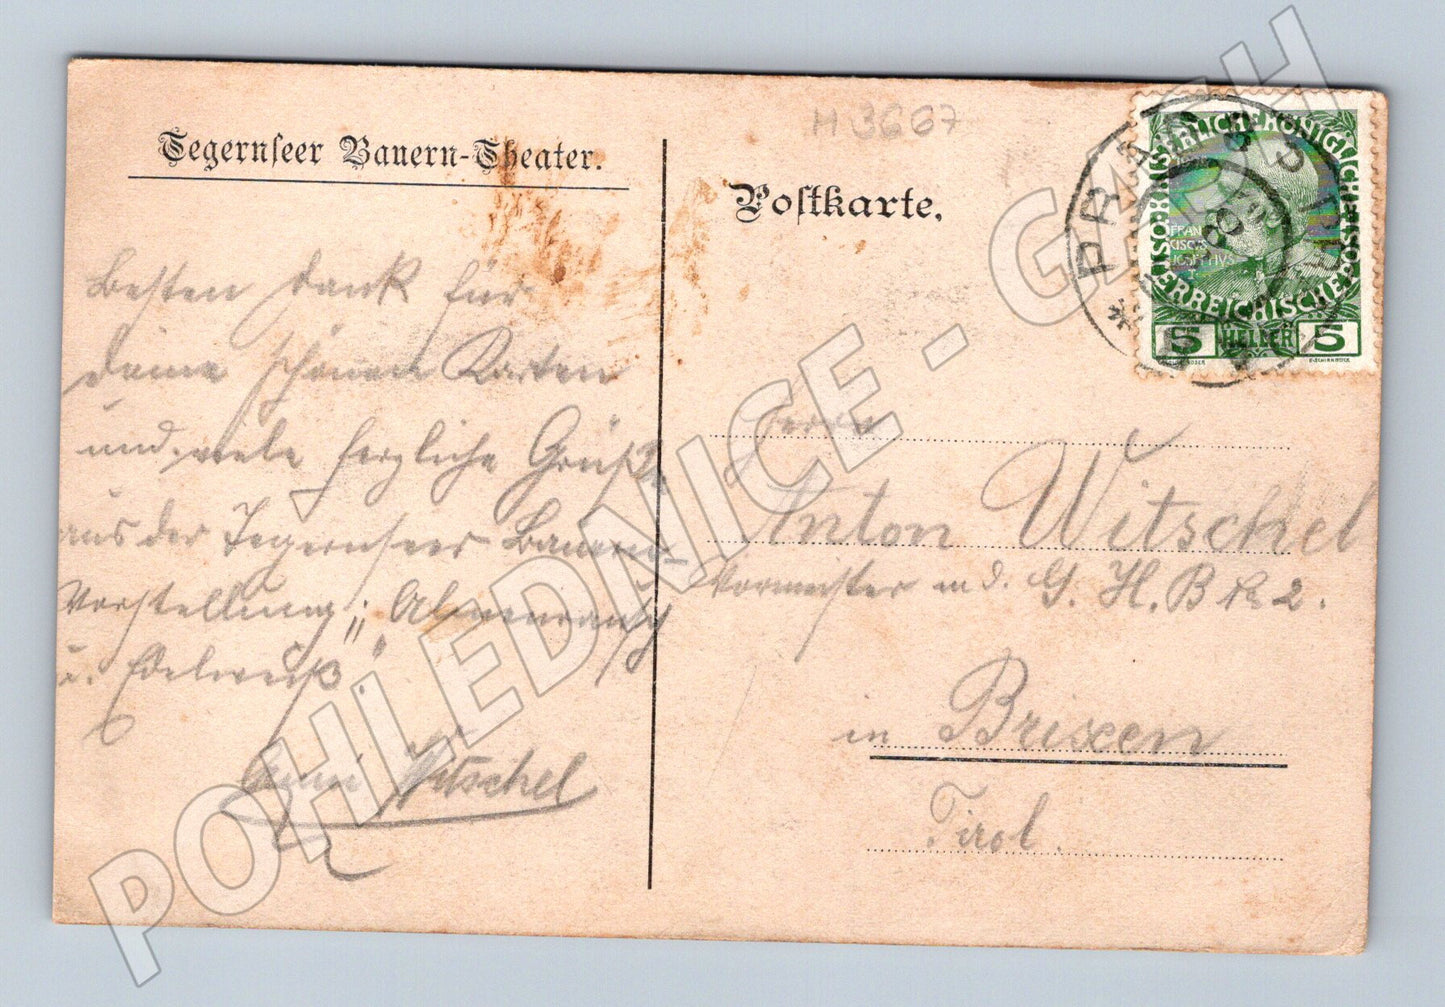 Tegernseer Bauern-Theater.
H 3667
Postkarte.
PRAG
KAISERLICHE KÖNIGLICHE
ÖSTERREICHISCHE
FRAN
CISCVS
IOSEPHVS
5 HELLER 5
Besten Dank für
deine schönen Karten
und viele herzliche Grüße
aus der Tegernseer Bauern-
Vorstellung: „Almenrausch
u. Edelweiß".
Anni Witschel
Herrn
Anton Witschel
Vormeister in d. G. H. B. 2.
in Brixen
Tirol.
POHLEDNICE - GABCH